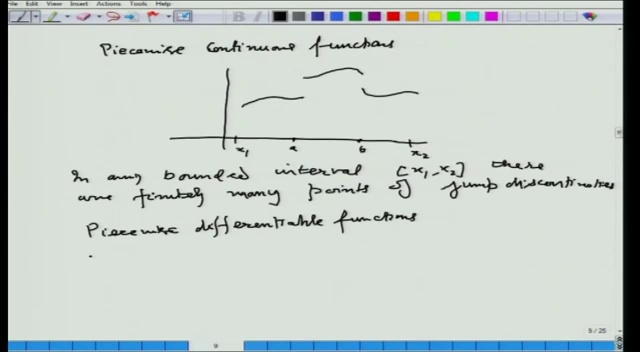 File Edit View Insert Actions Tools Help
Piecewise continuous functions
x₁ a b x₂
In any bounded interval [x₁, x₂] there
are finitely many points of jump discontinuities
Piecewise differentiable functions
9
9 / 25